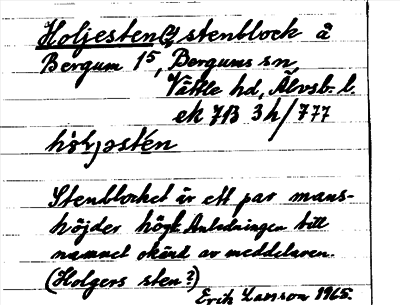 Holjesten(,) stenblock å
Bergum 1⁵, Bergums sn,
Vättle hd, Älvsb. l.
ek 7B 3h/777
hòljəsten
Stenblocket är ett par mans-
höjder högt. Anledningen till
namnet okänd av meddelaren.
(Holgers sten?)
Erik Larsson 1965.